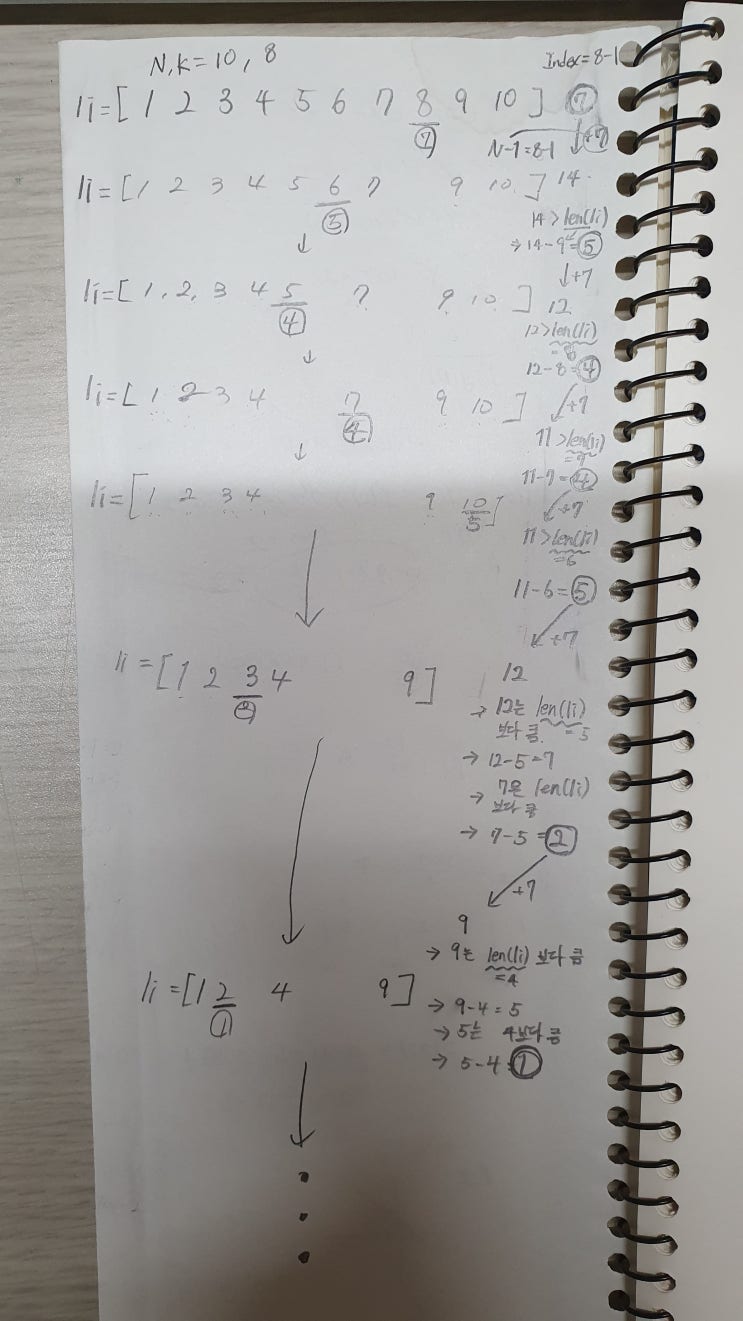 N,k=10, 8
Index=8-1
li=[ 1 2 3 4 5 6 7 8 9 10 ] ⑦
⑦
N-1=8-1
↓+⑦
li=[ 1 2 3 4 5 6 7 9 10 ] 14
⑤
14>len(li)
→14-9=⑤
↓
↓+7
li=[ 1, 2, 3 4 5 7 9 10 ] 12
④
12>len(li)
=8
12-8=④
↓
↙+7
li=[ 1 2 3 4 7 9 10 ]
④
11>len(li)
=7
11-7=④
↓
↙+7
li=[ 1 2 3 4 9 10 ]
5
11>len(li)
=6
11-6=⑤
↙+7
li=[1 2 3 4 9] 12
②
→ 12는 len(li)
보다 큼. =5
→ 12-5=7
→ 7은 len(li)
보다 큼
→ 7-5=②
↙+7
9
→ 9는 len(li) 보다 큼
=4
li=[1 2 4 9]
①
→ 9-4=5
→ 5는 4보다 큼
→ 5-4=①